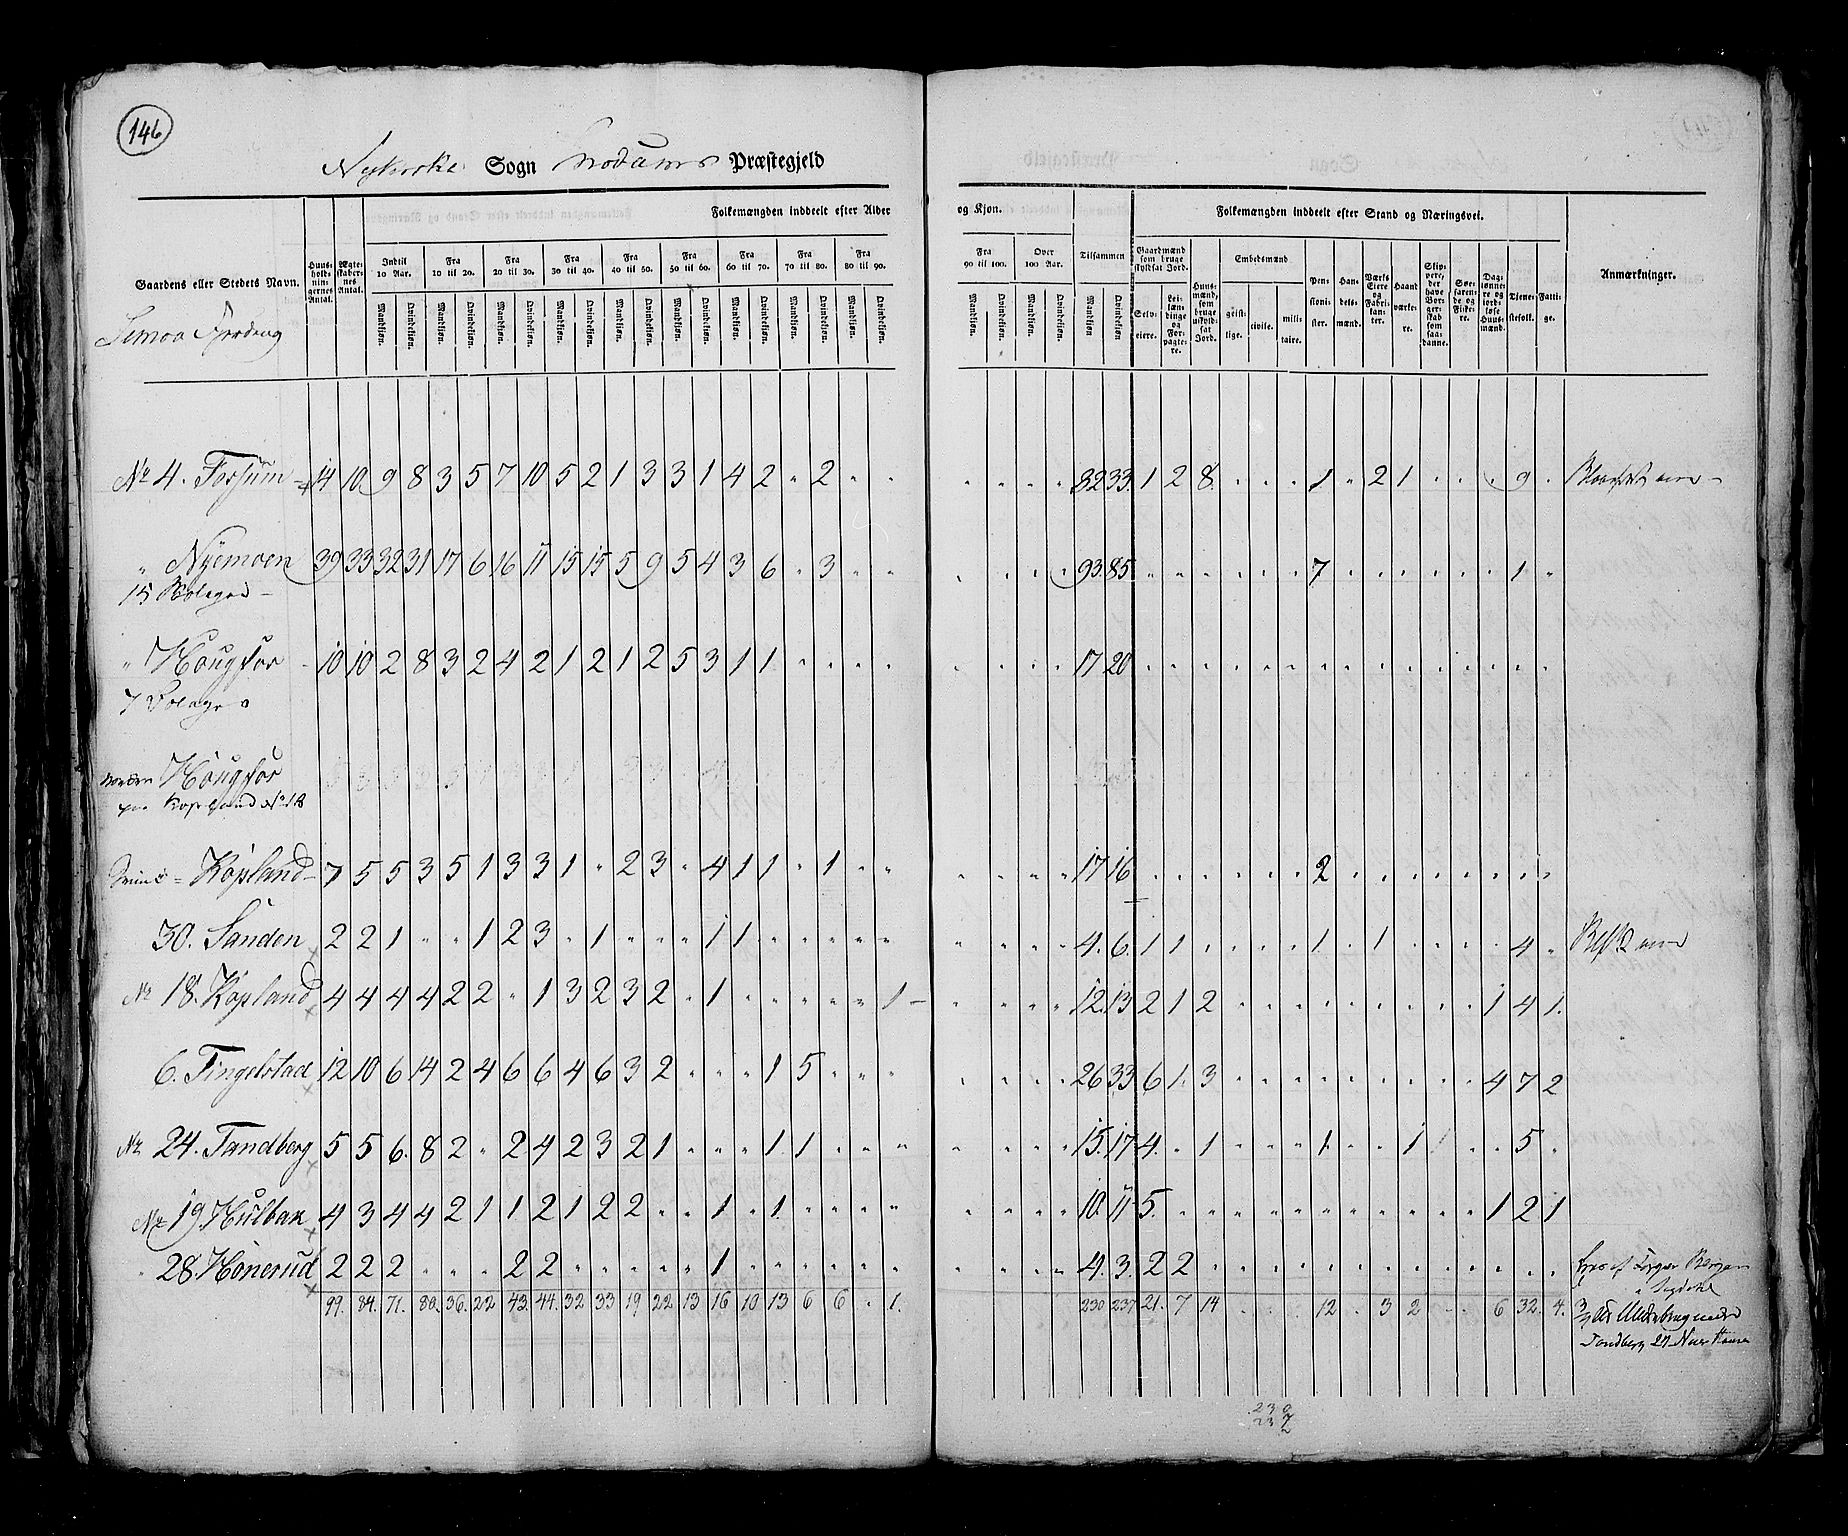 146
Nykirke Sogn Modums Præstegjeld
Folkemængden inddeelt efter Alder og Kjøn. Folkemængden inddeelt efter Stand og Næringsvei.
Gaardens eller Stedets Navn. Huusholdningernes Antal. Ægteskabernes Antal. Indtil 10 Aar. Fra 10 til 20. Fra 20 til 30. Fra 30 til 40. Fra 40 til 50. Fra 50 til 60. Fra 60 til 70. Fra 70 til 80. Fra 80 til 90. Fra 90 til 100. Over 100 Aar. Tilsammen Gaardmænd som bruge skyldsat Jord. Huusmænd, som bruge uskyldsat Jord. Embedsmænd Pensionister. Handelsmænd. Værks Eiere og Fabrikanter. Haandværkere. Skippere, der have Borgerskab som saadanne. Søefarende og Fiskere. Daglønnere og jordløse Huusmænd. Tjenestefolk. Fattige. Anmærkninger.
Mandkjøn. Qvindekjøn. Selveiere. Leilændinge og Forpagtere. geistlige. civile. militaire.
Simoa Fjerding
No 4. Forsum 14 10 9 8 3 5 7 10 5 2 1 3 3 1 4 2 " 2 " " " " " " 32 33 1 2 8 " " " 1 " 2 1 " " " 9 "
" Nyemoen 39 33 32 31 17 6 16 11 15 15 5 9 5 4 3 6 " 3 " " " " " " 93 85 " " " " " " 7 " " " " " " 1 "
15
" Hougfos 10 10 2 8 3 2 4 2 1 2 1 2 5 3 1 1 " " " " " " " " 17 20 " " " " " " " " " " " " " " "
7
Hougfos
Kopland No 18
Kopland 7 5 5 3 5 1 3 3 1 " 2 3 " 4 1 1 " 1 " " " " " " 17 16 " " " " " " 2 " " " " " " " "
30. Sanden 2 2 1 " " 1 2 3 " 1 " " " 1 1 " " " " " " " " " 4. 6. 1 1 " " " " 1 " 1 " " " " 4 "
No 18. Kopland 4 4 4 4 2 2 " 1 3 2 3 2 " 1 " " " " " 1 " " " " 12. 13 2 1 2 " " " " " " " " " 1 4 1.
6. Tingelstad 12 10 6 14 2 4 6 6 4 6 3 2 " " " 1 5 " " " " " " " 26 33 6 1. 3 " " " " " " " " " 4 7 2
No 24. Tandberg 5 5 6. 8 2 " 2 4 2 3 2 1 " " " 1 1 " " " " " " " 15. 17 4. " 1 " " " 1 " " 1 " " " 5 "
No 19. Hulbak 4 3 4 4 2 1 1 2 1 2 2 " " 1 " 1. " " " " " " " " 10. 11 5. " " " " " " " " " " " 1 2 1
" 28. Hønerud 2 2 2 " " " 2 2 " " " " " 1 " " " " " " " " " " 4. 3. 2 2 " " " " " " " " " " " " "
99. 84. 71. 80. 36. 22 43. 44. 32 33 19 22. 13 16 10 13 6 6 " 1. 230 237 21. 7 14 12 " 3 2 6 32. 4.
Tandberg 24
230
237